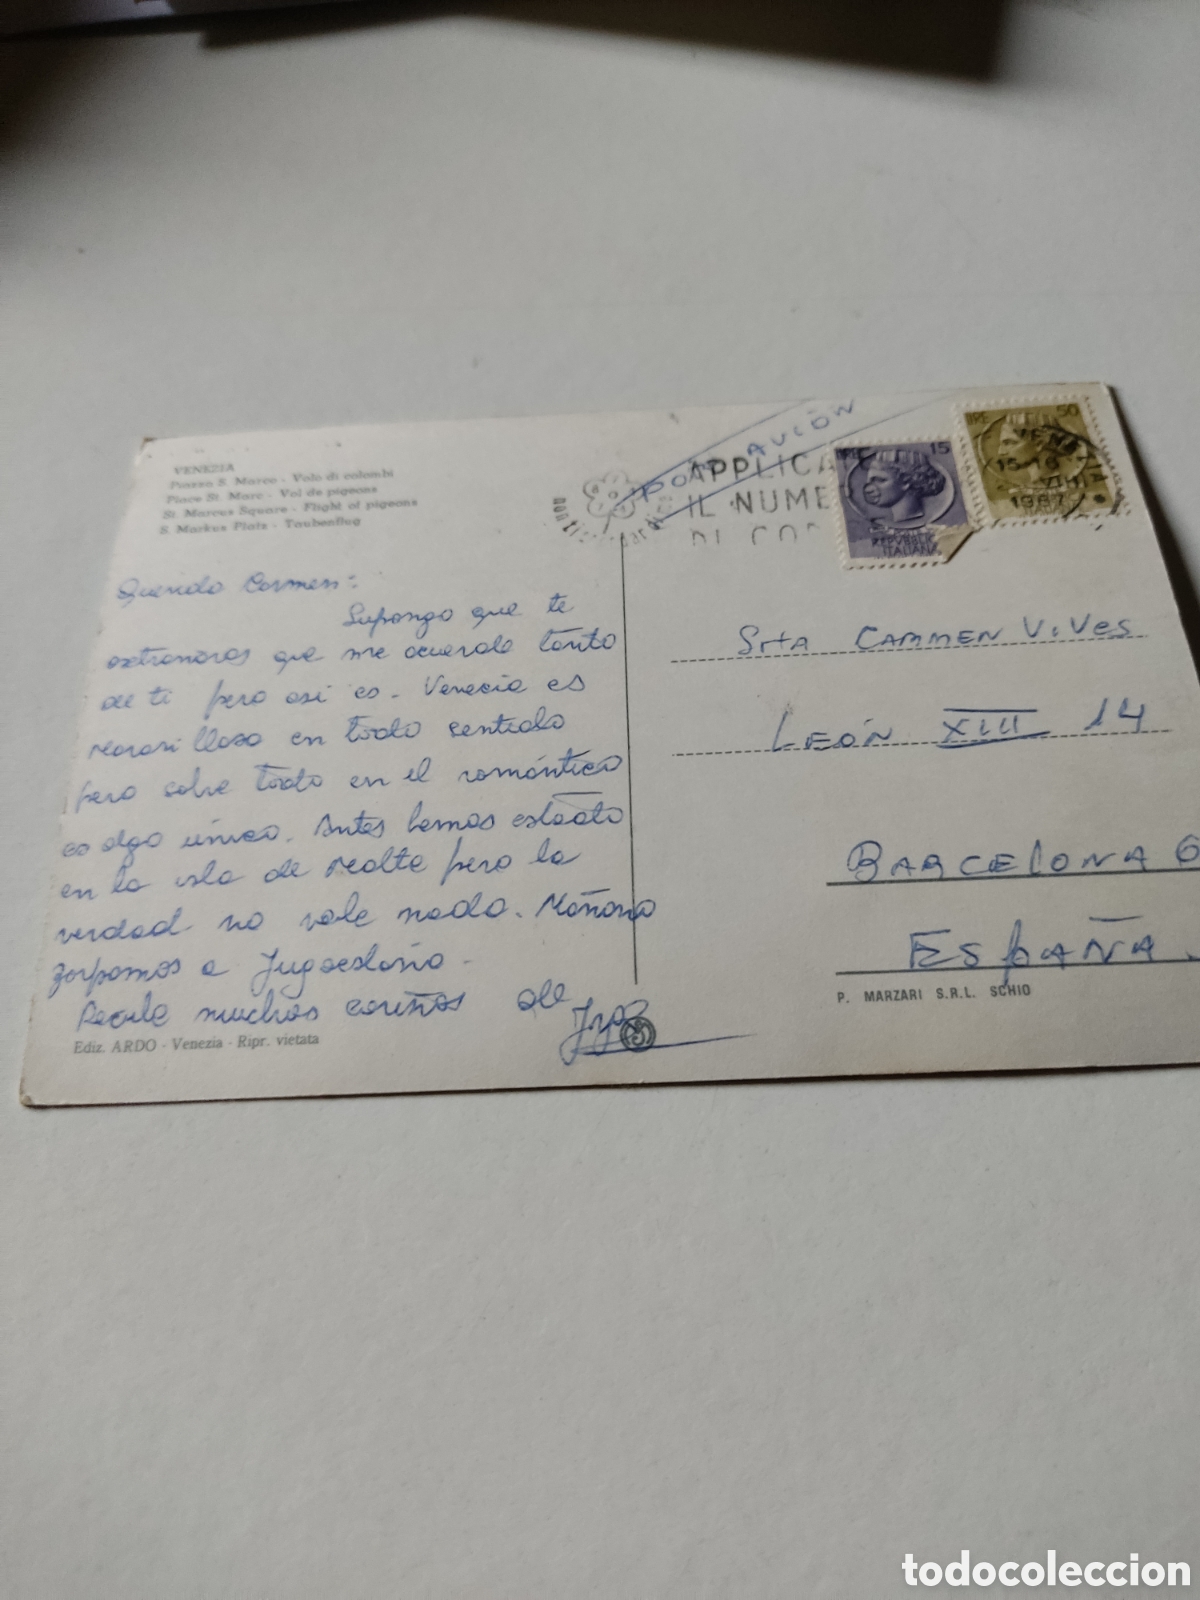 VENEZIA
Piazza S. Marco - Volo di colombi
Place St. Marc - Vol de pigeons
St. Marcus Square - Flight of pigeons
S. Markus Platz - Taubenflug
Querida Carmen:
Supongo que te
extrañaras que me acuerde tanto
de ti pero asi es. Venecia es
Maravilloso en todo sentido
pero sobre todo en el romántico
es algo único. Antes hemos estado
en la isla de Malta pero la
verdad no vale nada. Mañana
zarpamos a Jugoeslavia.
Recibe muchos cariños de
Ediz. ARDO - Venezia - Ripr. vietata
POR AVIÓN
APPLICA
IL NUME
DI COD
LIRE 15
REPVBBLICA
ITALIANA
LIRE 50
VENEZIA
15-16
VIII
1967
Srta CARMEN VIVES
LEÓN XIII 14
BARCELONA 6
ESPAÑA.
P. MARZARI S.R.L. SCHIO
todocoleccion